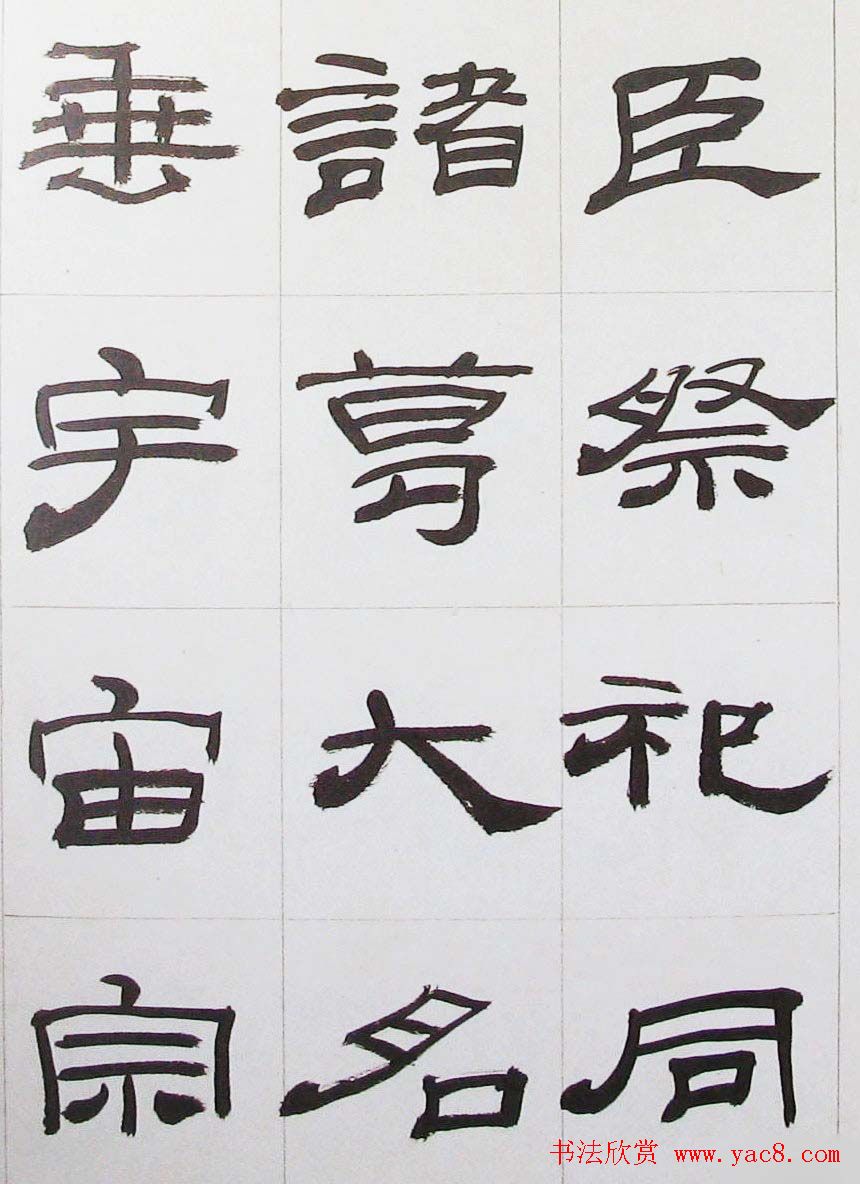 臣祭祀同
諸葛大名
垂宇宙宗
书法欣赏 www.yac8.com